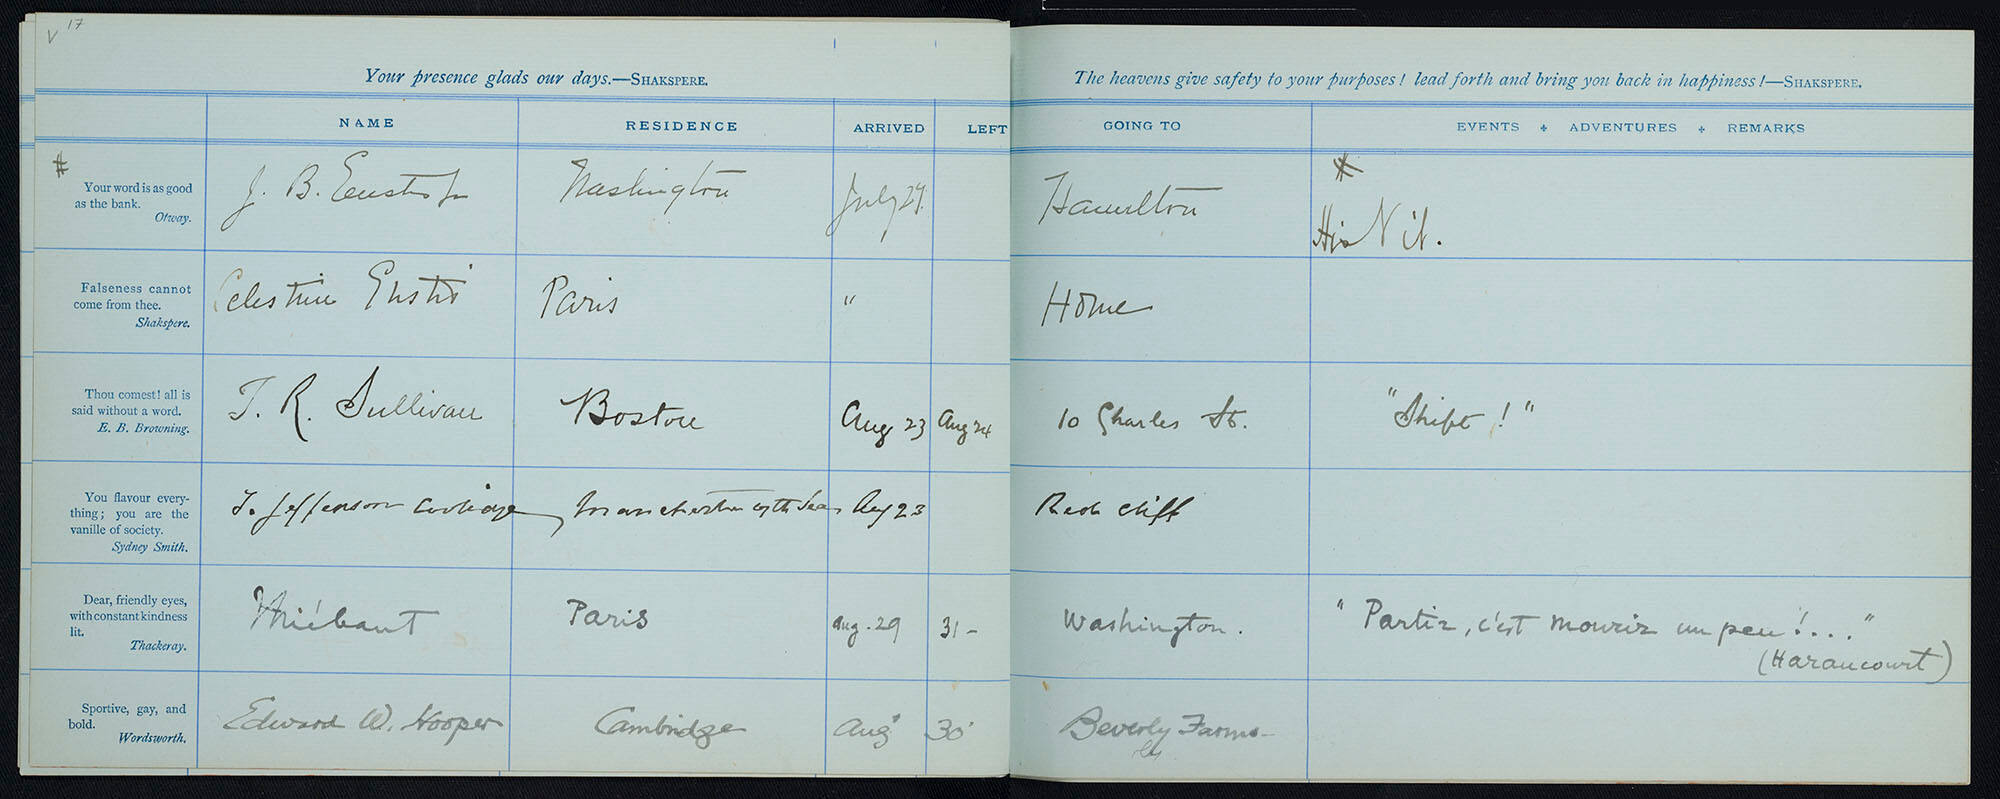 v 17
Your presence glads our days.—SHAKSPERE.
The heavens give safety to your purposes! lead forth and bring you back in happiness!—SHAKSPERE.
NAME RESIDENCE ARRIVED LEFT GOING TO EVENTS + ADVENTURES + REMARKS
#
Your word is as good
as the bank.
Otway.
J. B. Eustis Jr Washington July 29. Hamilton
#
His Nit.
Falseness cannot
come from thee.
Shakspere.
Celestine Eustis Paris " Home
Thou comest! all is
said without a word.
E. B. Browning.
T. R. Sullivan Boston Aug 23 Aug 24 10 Charles St. "Shift!"
You flavour every-
thing; you are the
vanille of society.
Sydney Smith.
T. Jefferson Coolidge, Manchester by the Sea Aug 23 Red Cliff
Dear, friendly eyes,
with constant kindness
lit.
Thackeray.
Thiébaut Paris aug. 29 31- Washington. "Partir, c'est mourir un peu!..."
(Haraucourt)
Sportive, gay, and
bold.
Wordsworth.
Edward W. Hooper Cambridge Aug 30 Beverly Farms-